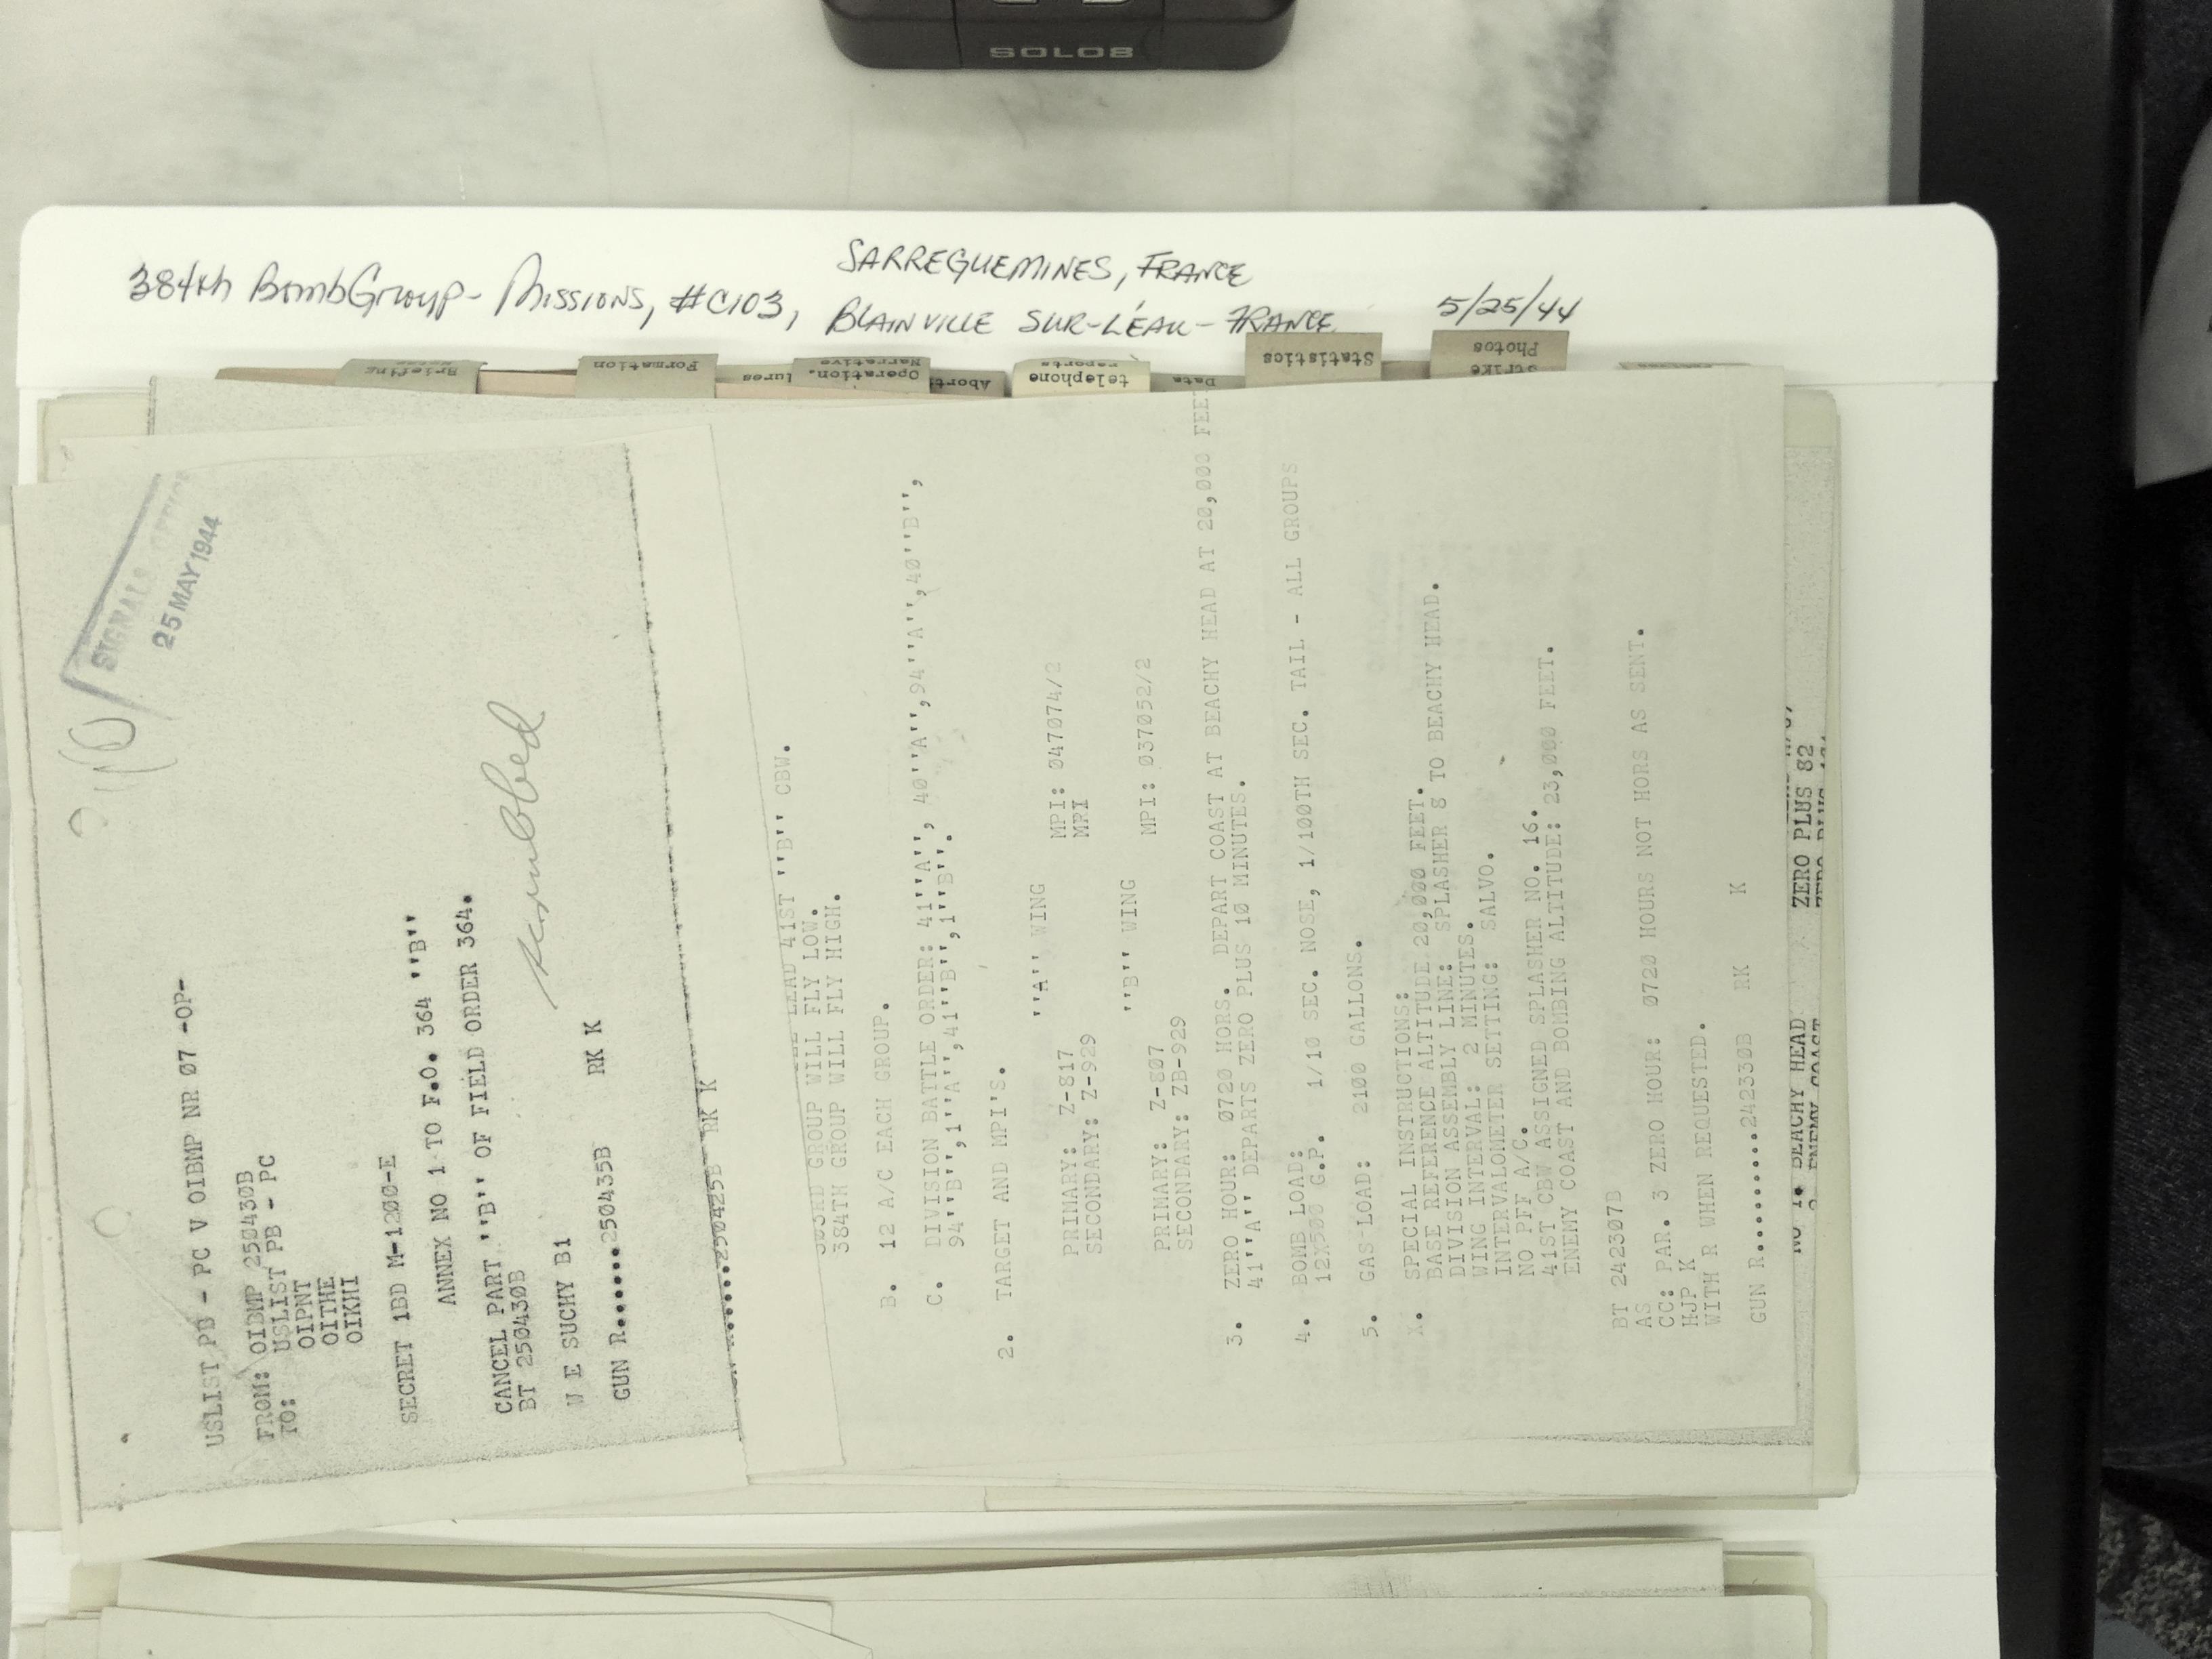 SOLO8
SARREGUEMINES, FRANCE
384th BombGroup- Missions, #C103, BLAINVILLE SUR-L'EAU- FRANCE 5/25/44
Briefing
Formation
Operation.
Narrative
Abort
telephone
reports
Data
Statistics
Strike
Photos
SIGNALS OFFICE
25 MAY 1944
USLIST PB - PC V OIBMP NR 07 -OP-
FROM: OIBMP 250430B
TO: USLIST PB - PC
OIPNT
OITHE
OIKHI
SECRET 1BD M-1200-E
ANNEX NO 1 TO F.O. 364 ''B''
CANCEL PART ''B'' OF FIELD ORDER 364.
BT 250430B
Scrubbed
W E SUCHY B1
GUN R......250435B RK K
250425B RK K
GROUP WILL LEAD 41ST ''B'' CBW.
303RD GROUP WILL FLY LOW.
384TH GROUP WILL FLY HIGH.
B. 12 A/C EACH GROUP.
C. DIVISION BATTLE ORDER: 41''A'', 40''A'',94''A'',40''B'',
94''B'',1''A'',41''B'',1''B''.
2. TARGET AND MPI'S.
''A'' WING
PRIMARY: Z-817 MPI: 047074/2
SECONDARY: Z-929 MRI
''B'' WING
PRIMARY: Z-807 MPI: 037052/2
SECONDARY: ZB-929
3. ZERO HOUR: 0720 HORS. DEPART COAST AT BEACHY HEAD AT 20,000 FEET
41''A'' DEPARTS ZERO PLUS 10 MINUTES.
4. BOMB LOAD: 1/10 SEC. NOSE, 1/100TH SEC. TAIL - ALL GROUPS
12X500 G.P.
5. GAS LOAD: 2100 GALLONS.
X. SPECIAL INSTRUCTIONS:
BASE REFERENCE ALTITUDE 20,000 FEET.
DIVISION ASSEMBLY LINE: SPLASHER 8 TO BEACHY HEAD.
WING INTERVAL: 2 MINUTES.
INTERVALOMETER SETTING: SALVO.
NO PFF A/C.
41ST CBW ASSIGNED SPLASHER NO. 16.
ENEMY COAST AND BOMBING ALTITUDE: 23,000 FEET.
BT 242307B
AS
CC: PAR. 3 ZERO HOUR: 0720 HOURS NOT HORS AS SENT.
HJP K
WITH R WHEN REQUESTED.
GUN R..........242330B RK K
NO 1. BEACHY HEAD ZERO PLUS 82
2 ENEMY COAST ZERO PLUS